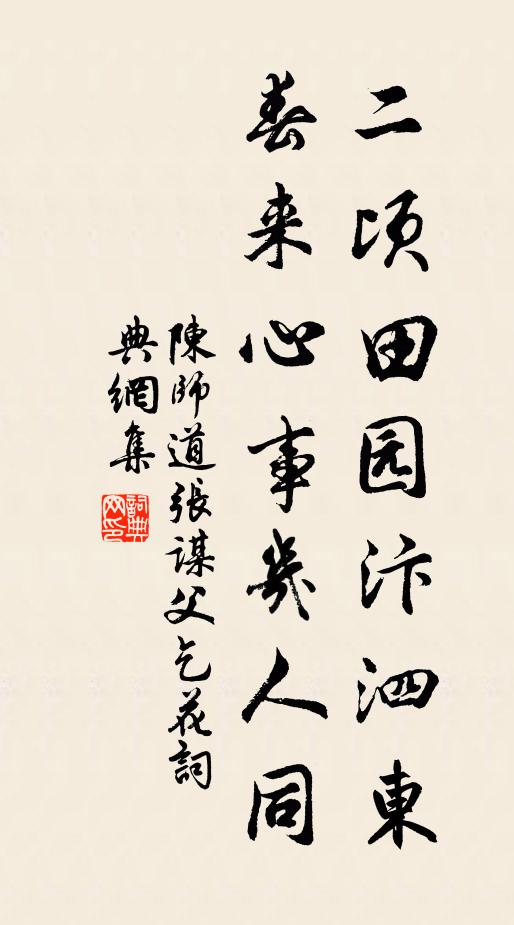 二顷田园汴泗東
春来心事幾人同
陳師道張謀父乞花詞
典網集
詞典网印